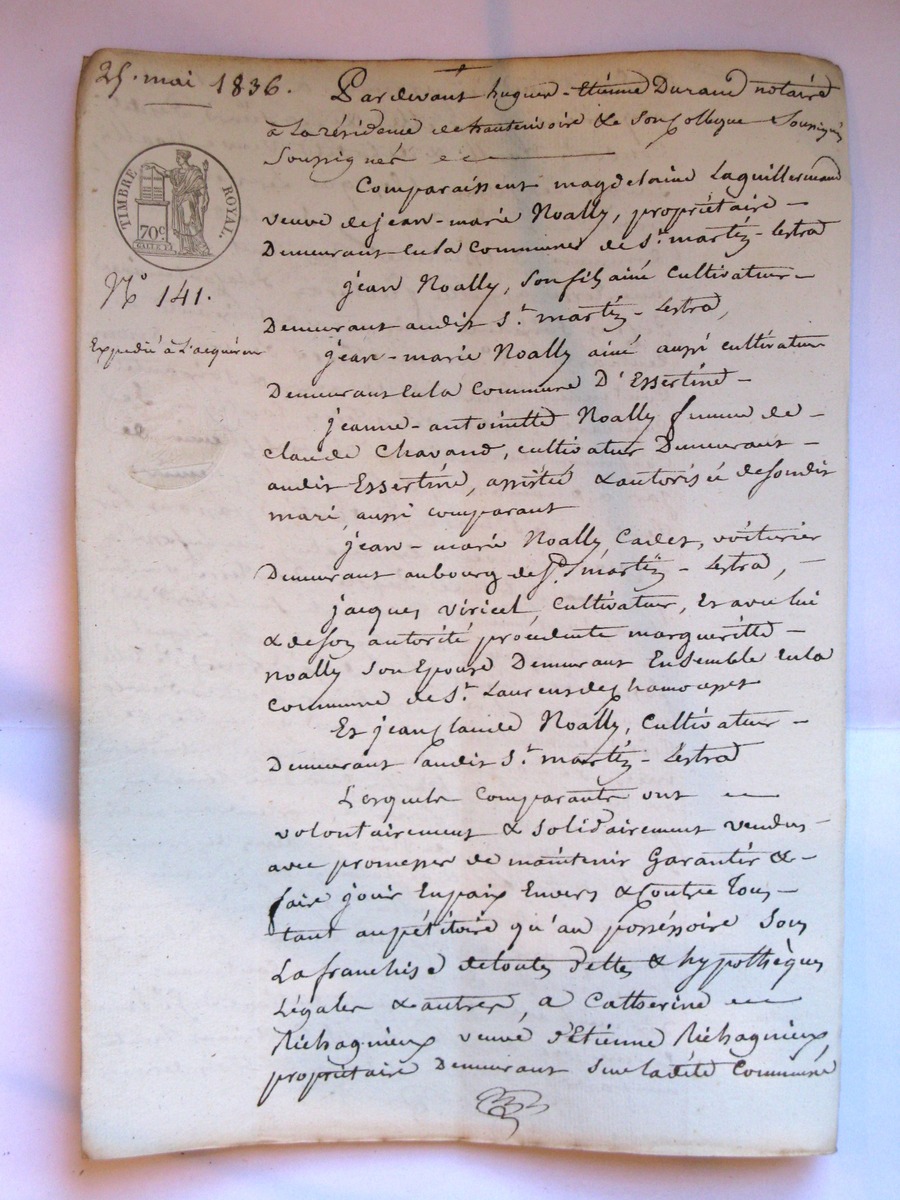 25. mai 1836.
Pardevant hugues-Etienne Durand notaire
à La résidence de hauterivoire & Son Collegue Soussignés
Soussignés
TIMBRE ROYAL.
70c
Comparaissent magdelaine Laguillermand
veuve de jean-marie Noally, propriétaire -
Demeurant en la Commune de St. martin-Lestra
N° 141.
jean Noally, Son fils ainé Cultivateur -
Demeurant audit St. martin-Lestra,
Expedié à L'acquéreur
jean-marie Noally ainé aussi cultivateur
Demeurant en la Commune D'Essertine -
jeanne-antoinette Noally femme de -
claude Chavand, cultivateur Demeurant -
audit Essertine, assistée & autorisée de son dit
mari, aussi comparant
jean-marie Noally Cadet, voiturier
Demeurant au bourg de St martin-Lestra, -
jacques viricel, Cultivateur, Et avec lui
& de son autorité procédente margueritte -
noally Son Epouse Demeurant Ensemble en la
Commune de St. Laurent de Chamousset
Et jean Claude Noally, Cultivateur -
Demeurant audit St. martin-Lestra
Lesquels Comparants ont
volontairement & Solidairement vendus -
avec promesse de maintenir Garantir & -
faire jouir En paix Envers & Contre Tous -
tant au pétitoire qu'au posséssoire Sous
La franchise de toutes dettes & hypothèques
Légales & autres, à Catherine
Richagnieux veuve d'Etienne Richagnieux,
propriétaire Demeurant Sur la dite Commune